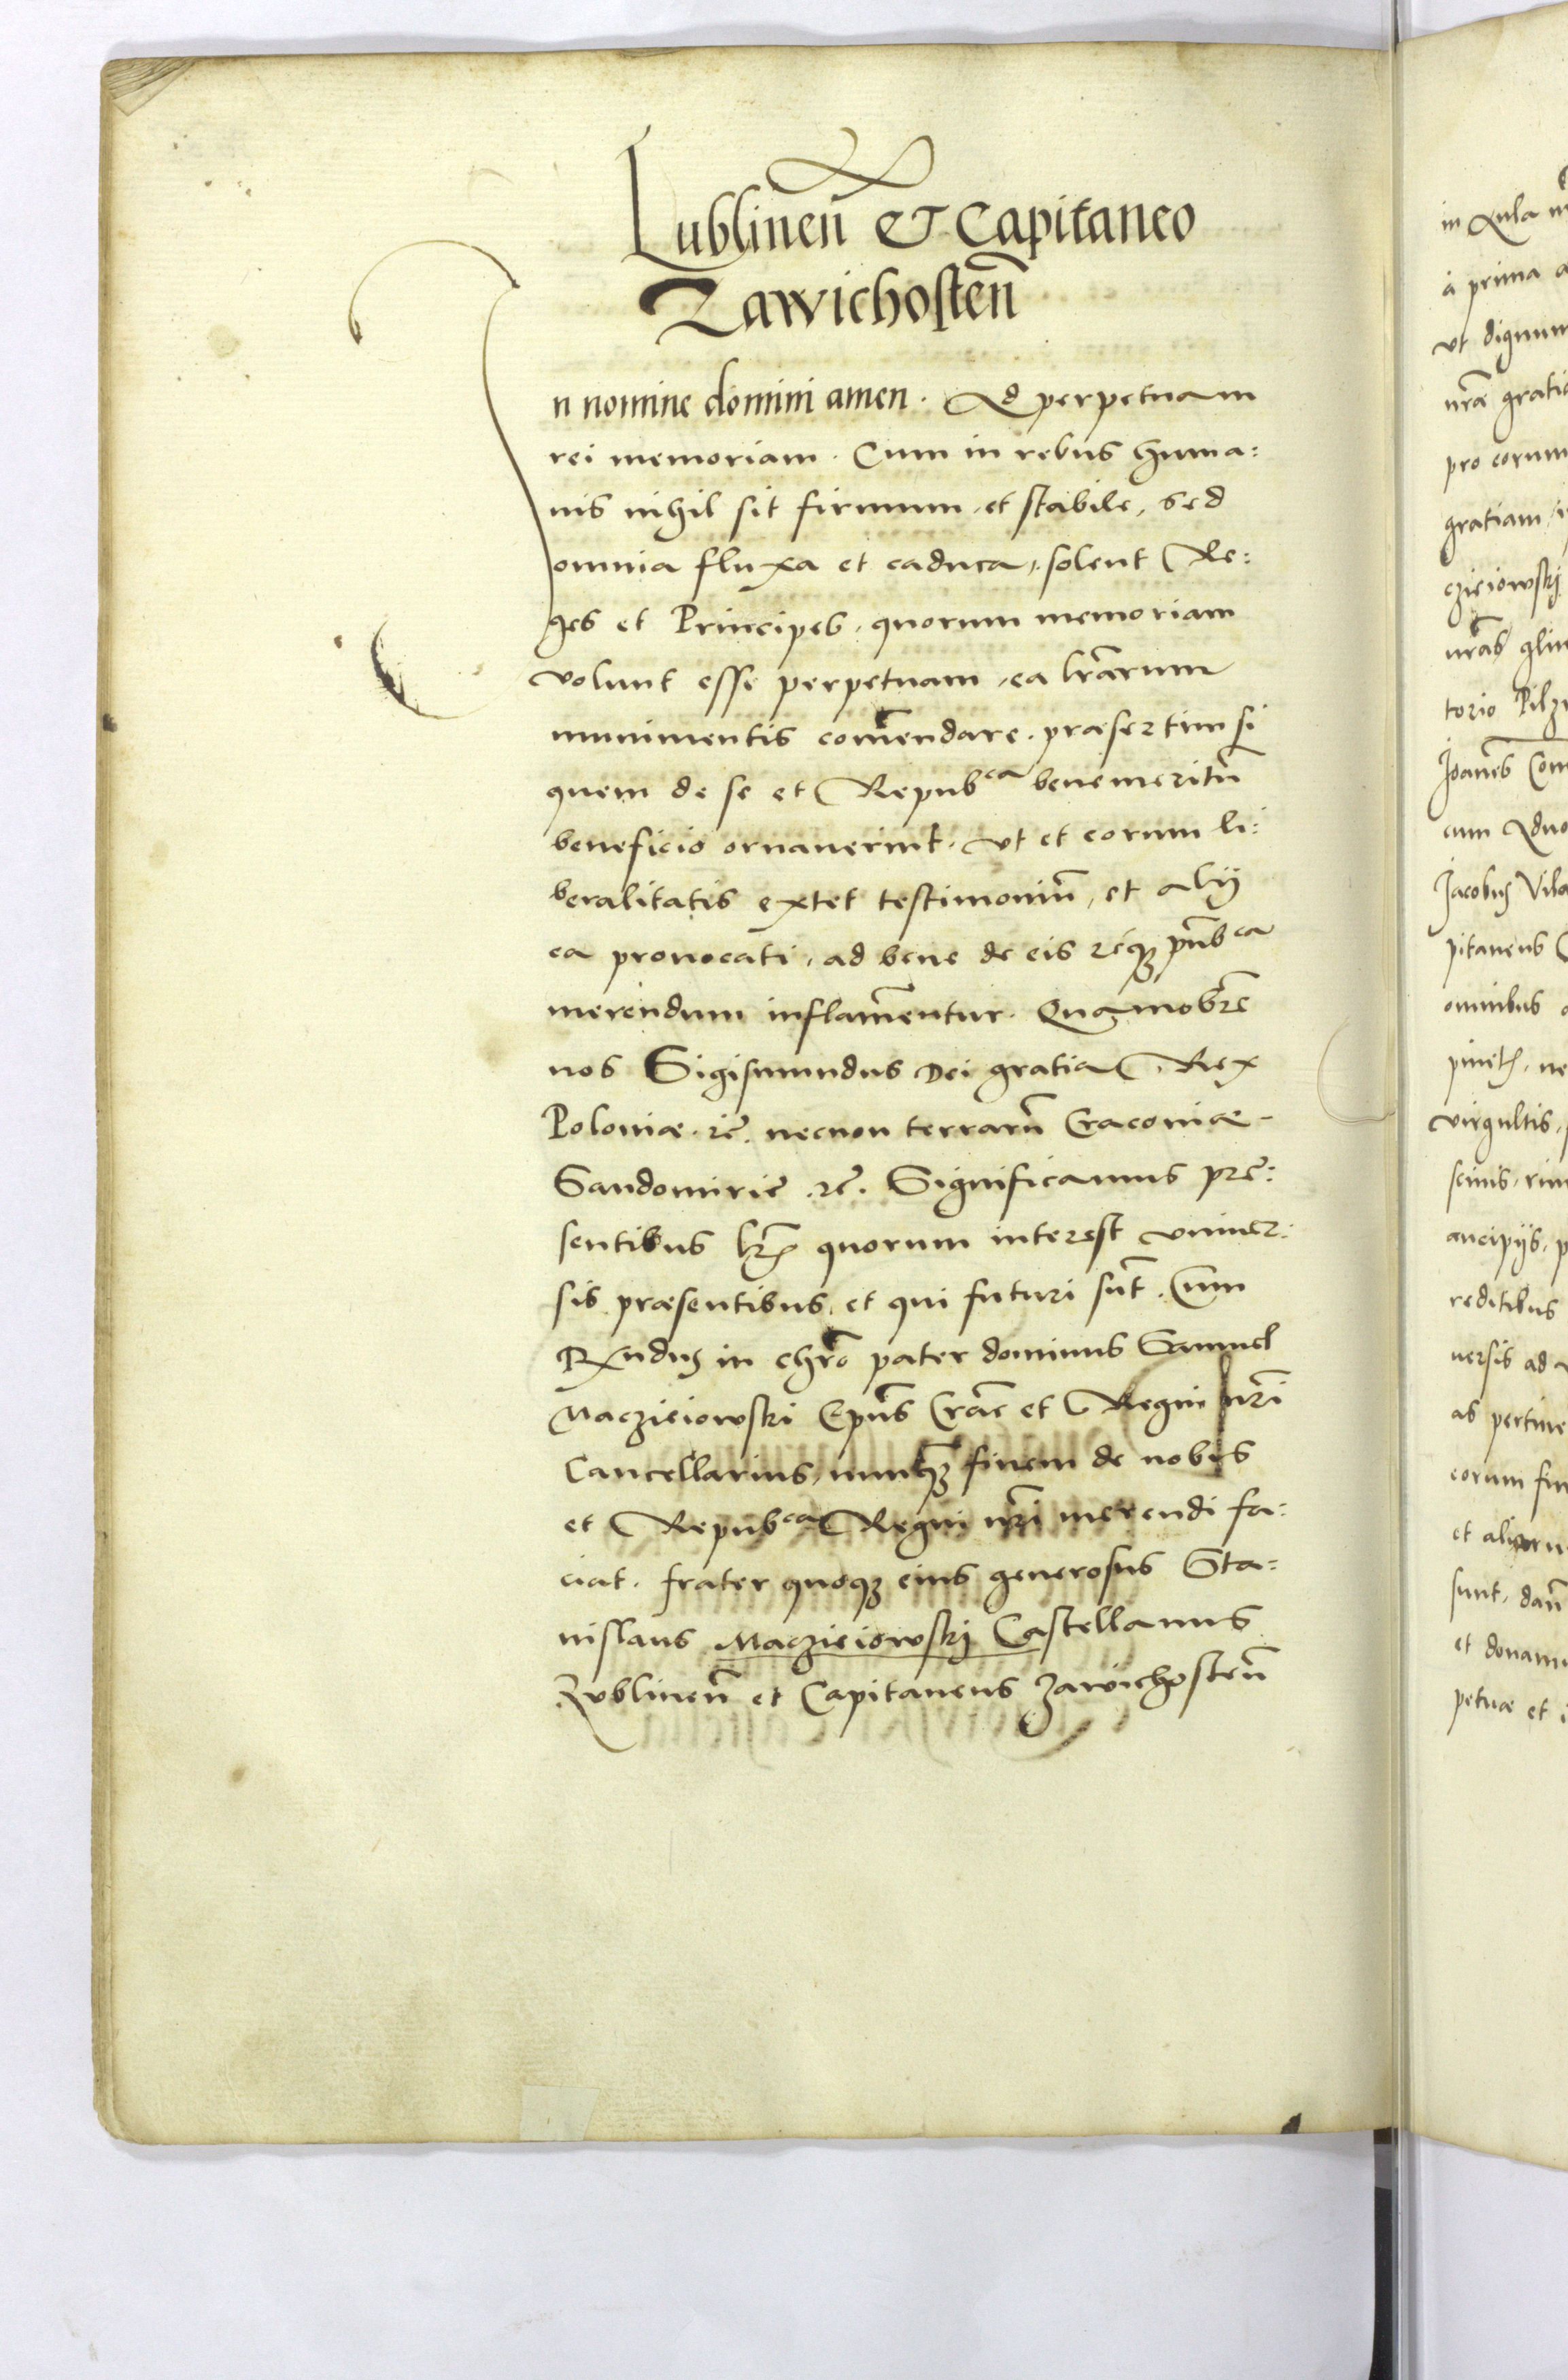 Lublinen̄ & Capitaneo
Zawichosten̄
In nomine domini amen. Ad perpetuam
rei memoriam. Cum in rebus huma:
nis nihil sit firmum et stabile, sed
omnia fluxa et caduca, solent Re:
ges et Principes, quorum memoriam
volunt esse perpetuam, ea lr̄arum
munimentis com̄endare. præsertim si
quem de se et Repubca benemeritū
beneficio ornauerint. vt et eorum li:
beralitatis extet testimoniū, et alij
ea prouocati, ad bene de eis reiqꝫ pubca
merendum inflam̄entur. Quamobrē
nos Sigismundus Dei gratia Rex
Poloniæ. rc̄. necnon terrarū Cracoviæ.
Sandomirię. rc̄. Significamus prę:
sentibus lr̄is quorum interest vniuer:
sis præsentibus, et qui futuri sūt. Cum
Rx̄ndus in chr̄o pater dominus Samuel
Maczieiowski Ep̄us Crac̄ et Regni nr̄i
Cancellarius, nunqꝫ finem de nobis
et Repubca Regni nr̄i merendi fa:
ciat. frater quoqꝫ eius generosus Sta:
nislaus Macziejowskj Castellanus
Lublinen̄ et Capitaneus Zawichosten̄
in Aula
à prima
vt dignum
nr̄æ
pro eorum
gratiam
cziejowskj
nr̄as
torio
Joānes
cum
Jacobus
pitaneus
omnibus
virgultis,
ancipijs,
reditibus
uersis ad
as
eorum
et
sunt, dan̄
et
petuæ et